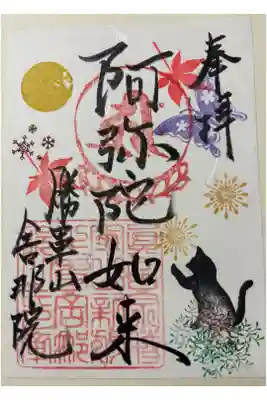 奉拝
阿弥陀如来
勝車山
舎那院